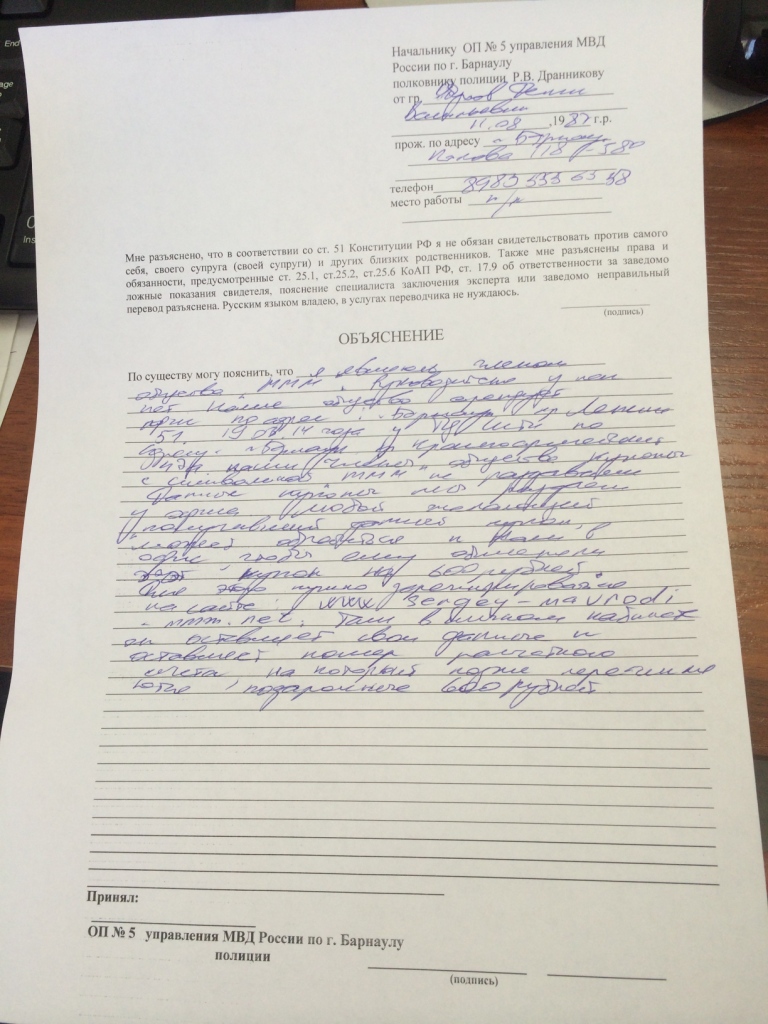 Начальнику ОП № 5 управления МВД
России по г. Барнаулу
полковнику полиции Р.В. Дранникову
от гр.
11.08 ,1987 г.р.
прож. по адресу г. Барнаул
Попова 118 - 580
телефон 8983 555 65 58
место работы н/р
Мне разъяснено, что в соответствии со ст. 51 Конституции РФ я не обязан свидетельствовать против самого
себя, своего супруга (своей супруги) и других близких родственников. Также мне разъяснены права и
обязанности, предусмотренные ст. 25.1, ст.25.2, ст.25.6 КоАП РФ, ст. 17.9 об ответственности за заведомо
ложные показания свидетеля, пояснение специалиста заключения эксперта или заведомо неправильный
перевод разъяснена. Русским языком владею, в услугах переводчика не нуждаюсь.
(подпись)
ОБЪЯСНЕНИЕ
По существу могу пояснить, что я являюсь членом
общества "МММ". Руководителя у нас
нет Наше общество арендует
офис по адресу г. Барнаул пр Ленина
51. 19 07.14 года у по
адресу г. Барнаул пр Красноармейский
наши члены общества купоны
с символикой "МММ" не раздавали
Данные купоны мы раздаём
у офиса любой желающий
получивший данный купон,
может обратится к нам в
офис чтобы ему обменяли
этот купон на 600 рублей
Для этого нужно зарегистрироваться
на сайте: www sergey-mavrodi
-mmm.net, Там в личном кабинете
он оставляет свои данные и
оставляет номер расчетного
счета, на который позже перечисля
ются подарочные 600 рублей
Принял:
ОП № 5 управления МВД России по г. Барнаулу
полиции
(подпись)